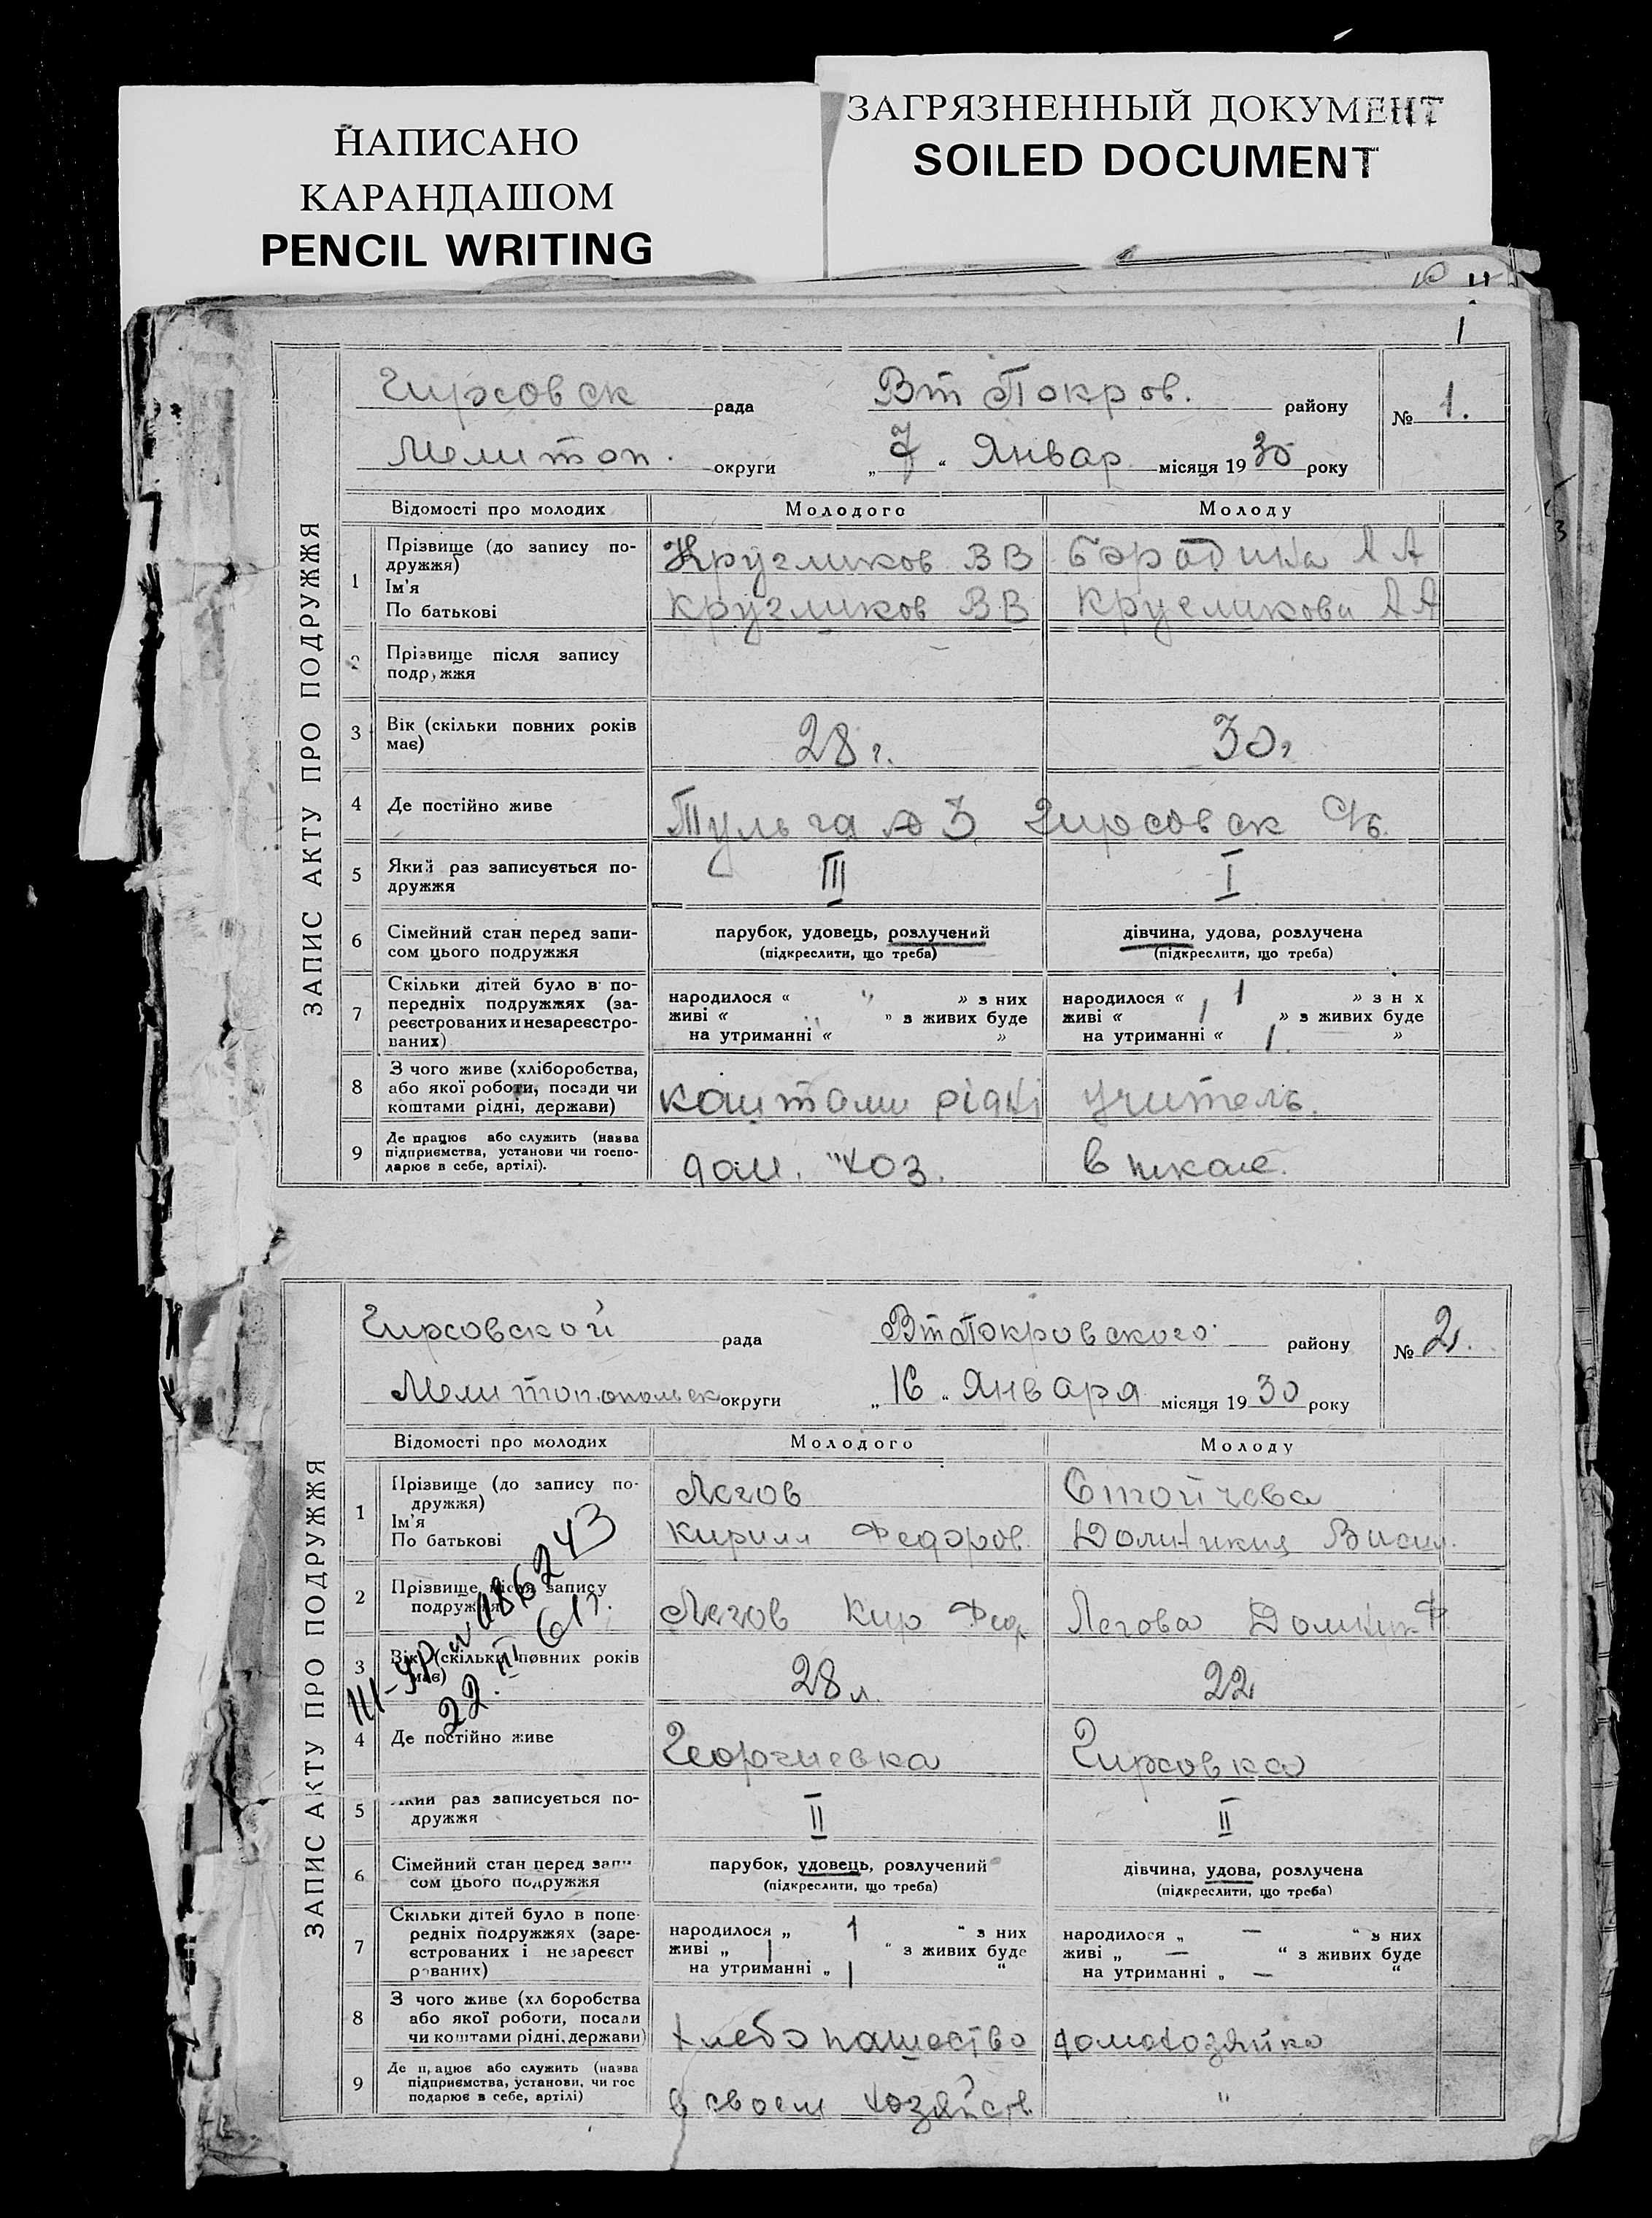 НАПИСАНО
КАРАНДАШОМ
PENCIL WRITING
ЗАГРЯЗНЕННЫЙ ДОКУМЕНТ
SOILED DOCUMENT
1
ЗАПИС АКТУ ПРО ПОДРУЖЖЯ
Гирсовск рада Вт Покров. району № 1.
Мелитоп. округи „ 7 “ Январ місяця 19 30 року
Відомості про молодих Молодого Молоду
1 Прізвище (до запису подружжя) Кругликов ВВ Бародина АА
Ім'я
По батькові Кругликов ВВ Кругликова АА
2 Прізвище після запису подружжя
3 Вік (скільки повних років має) 28 г. 30 г
4 Де постійно живе Гирсовск С/б.
5 Який раз записується подружжя III I
6 Сімейний стан перед записом цього подружжя парубок, удовець, розлучений дівчина, удова, розлучена
(підкреслити, що треба) (підкреслити, що треба)
7 Скільки дітей було в попередніх подружжях (зареєстрованих и незареєстрованих) народилося « „ » з них народилося « 1 » з н х
живі « „ » з живих буде живі « 1 » з живих буде
на утриманні « » на утриманні « 1 »
8 З чого живе (хліборобства, або якої роботи, посади чи коштами рідні, держави) коштами рідні учитель.
9 Де працює або служить (назва підприємства, установи чи господарює в себе, артілі). дом. хоз. в школе.
ЗАПИС АКТУ ПРО ПОДРУЖЖЯ
Гирсовской рада ВтПокровского району № 2.
Мелитопопольск округи „ 16 “ Января місяця 19 30 року
Відомості про молодих Молодого Молоду
1 Прізвище (до запису подружжя) Легов Стойчева
Ім'я
По батькові Кирилл Федоров. Домникия Васил.
2 Прізвище після запису подружжя Легов Кир Фед Легова Домник Ф
III-УР № 086243
22.III 61г.
3 Вік (скільки повних років має) 28 л. 22
4 Де постійно живе Георгиевка Гирсовка
5 Який раз записується подружжя II II
6 Сімейний стан перед записом цього подружжя парубок, удовець, розлучений дівчина, удова, розлучена
(підкреслити, що треба) (підкреслити, що треба)
7 Скільки дітей було в попередніх подружжях (зареєстрованих і незареєстрованих) народилося „ 1 “ з них народилося „ — “ з них
живі „ 1 “ з живих буде живі „ — “ з живих буде
на утриманні „ 1 “ на утриманні „ — “
8 З чого живе (хл боробства або якої роботи, посади чи коштами рідні, держави) хлебопашество домохозяйка
9 Де працює або служить (назва підприємства, установи, чи господарює в себе, артілі) в своем хозяйств. "